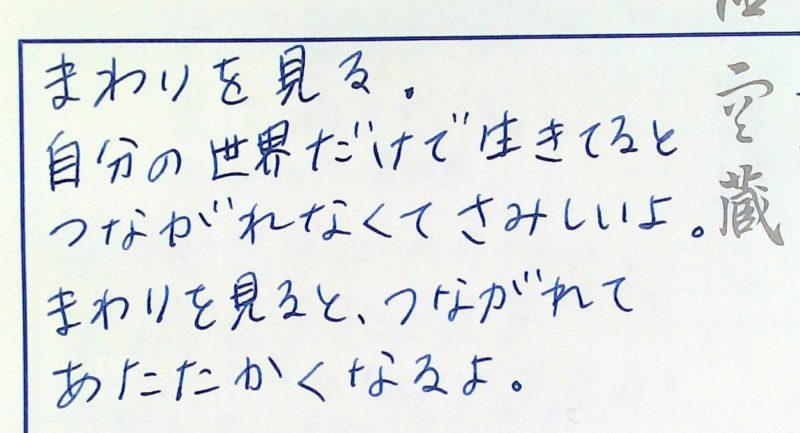 まわりを見る.
自分の世界だけで生きてると
つながれなくてさみしいよ。
まわりを見ると、つながれて
あたたかくなるよ。
空蔵